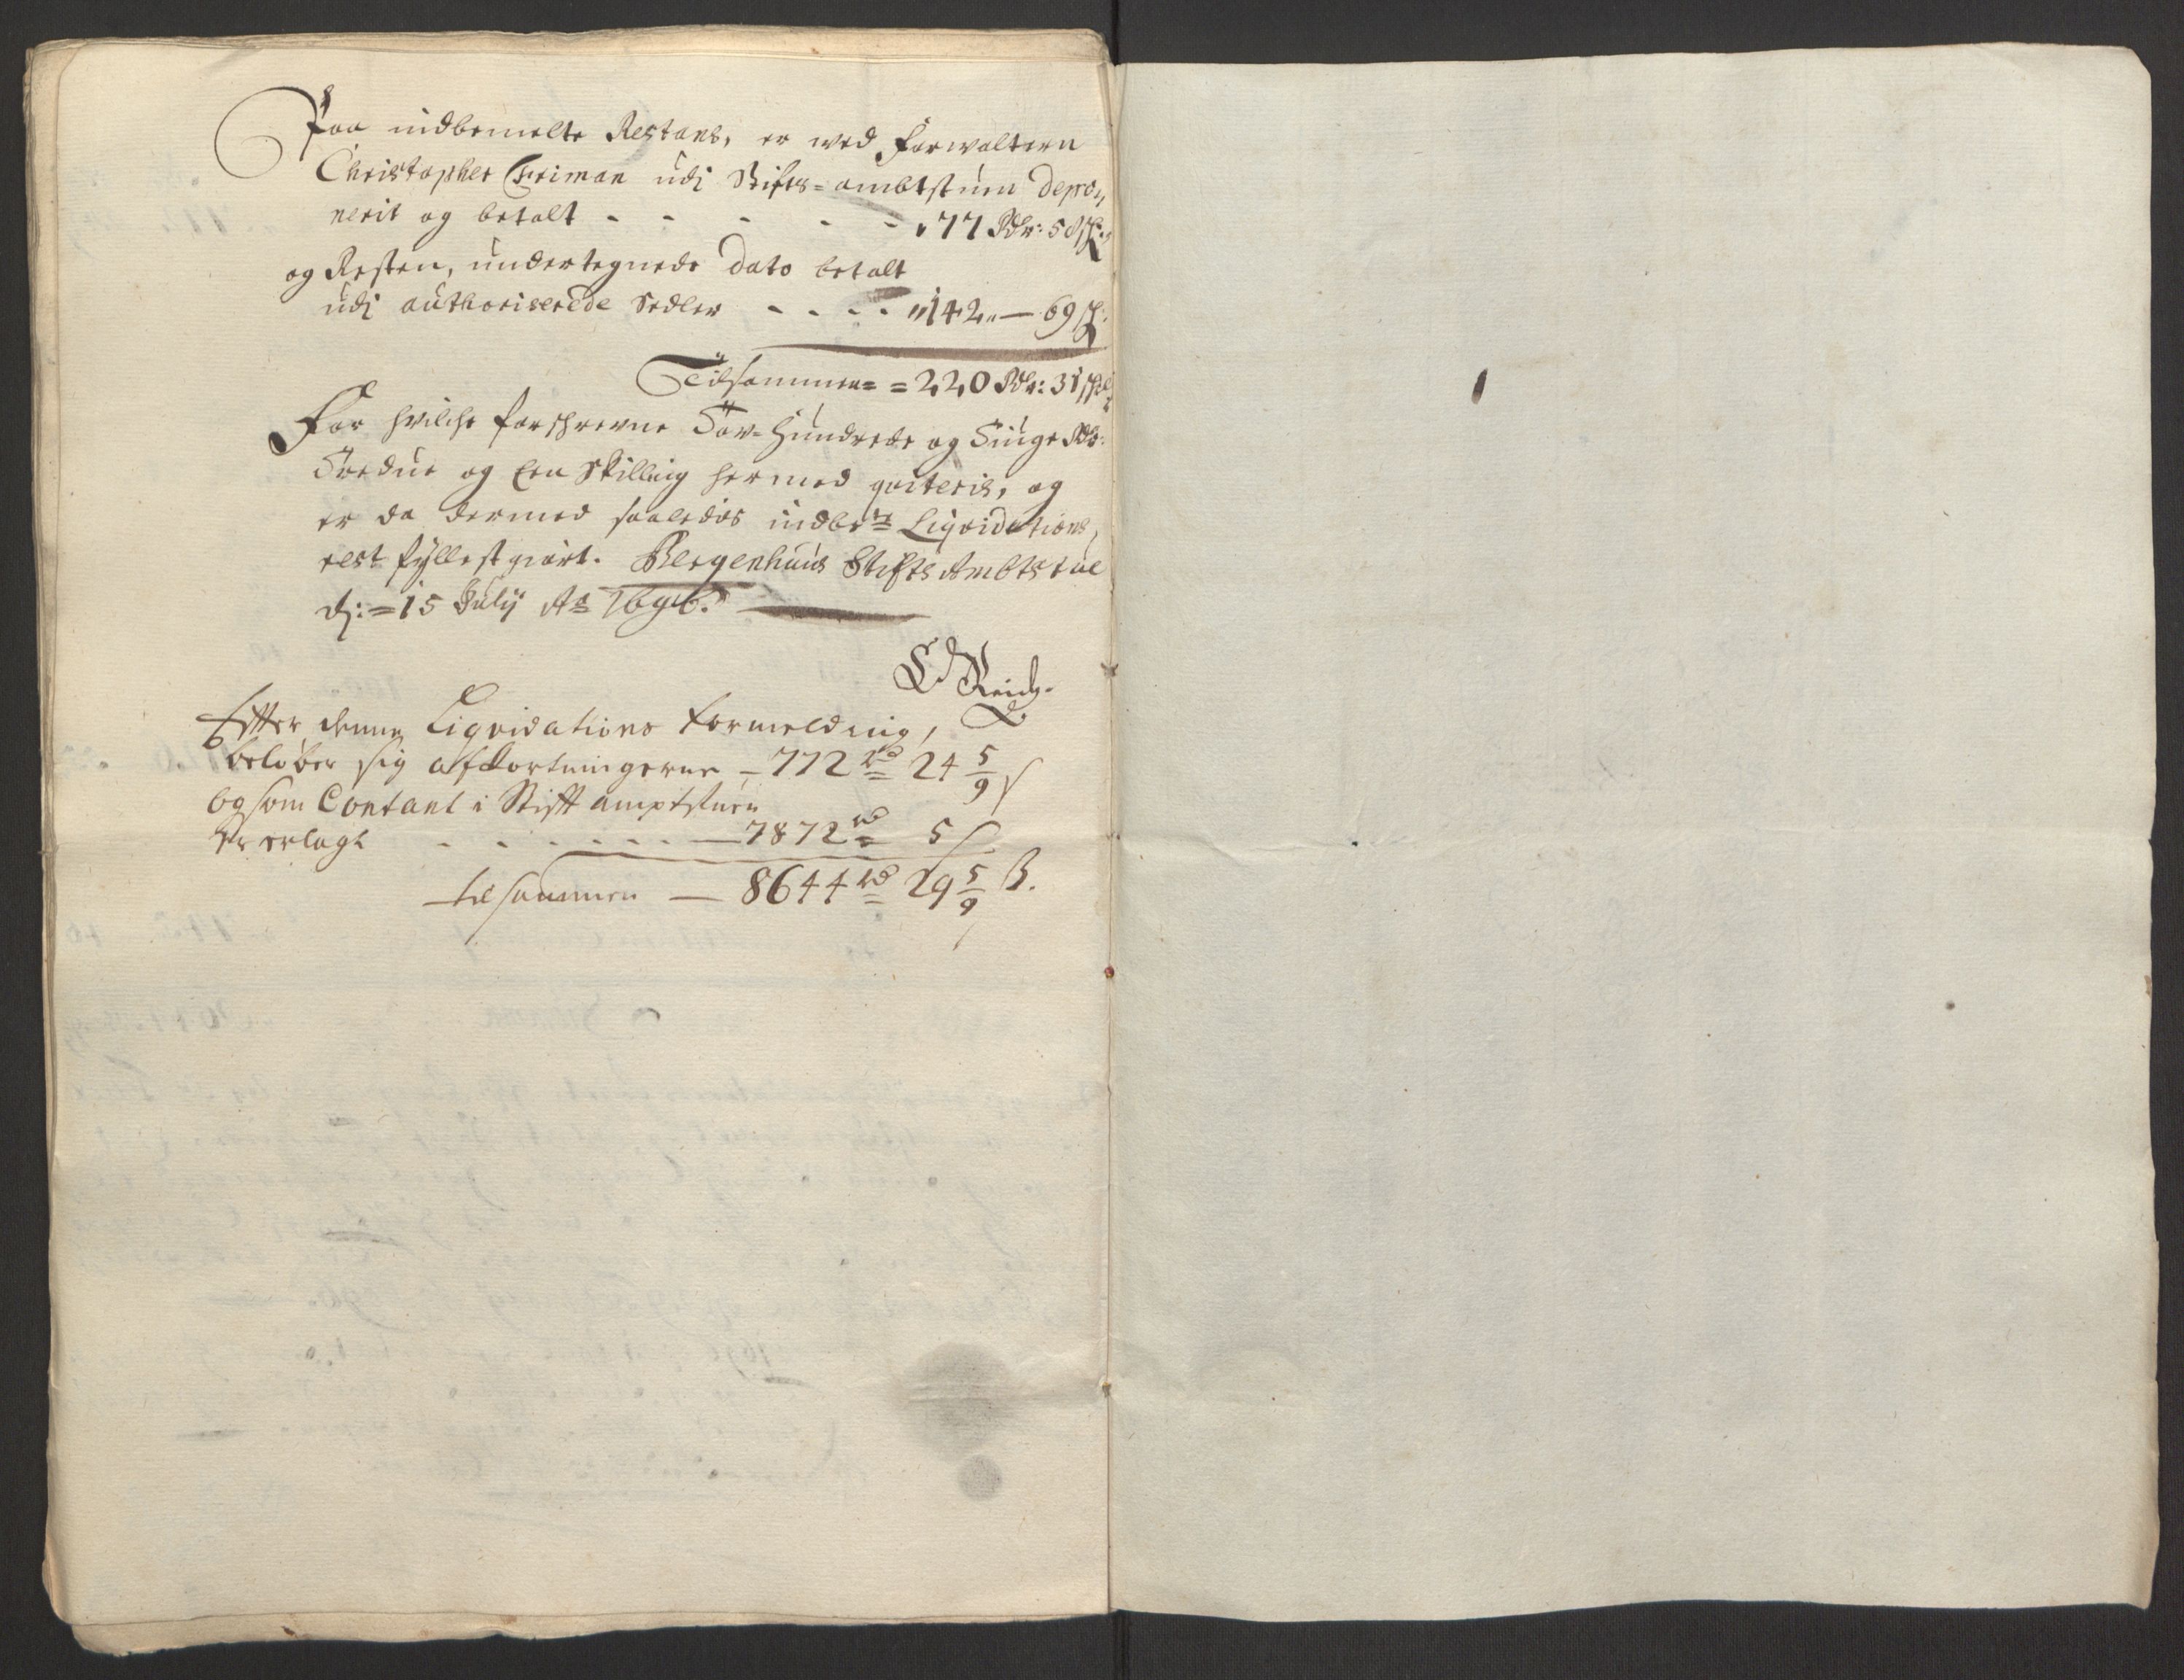 Paa indbemelte Restans, er wed Forwaltern
Christopher Griman udj Stifts=ambtstuen depo„
nerit og betalt - - - - - „77 Rdr: 58 ß:
og Resten, undertegnede dato betalt
udj authoriserede Sedler - - - - „142„ — 69 ß:
Tilsammen = = 220 Rdr: 31 ß
For hvilche forschrevne Tov-Hundrede og Tiuge Rdr:
Tredue og Een Skilling hermed qviteris, og
er da dermed saaledes indbete Liqvidations
rest fyllestgiørt. Bergenhuus Stifts Ambtstue
dj: = 15 Julij Ao 1696.
Effter denne Liqvidations formelding,
beløber sig afkortningerne — 772 rd 24 5/9 ß
og som Contant i Stifft amptstuen
er erlagt - - - - - - — 7872 rd 5 ß
tilsammen — 8644 rd 29 5/9 ß.